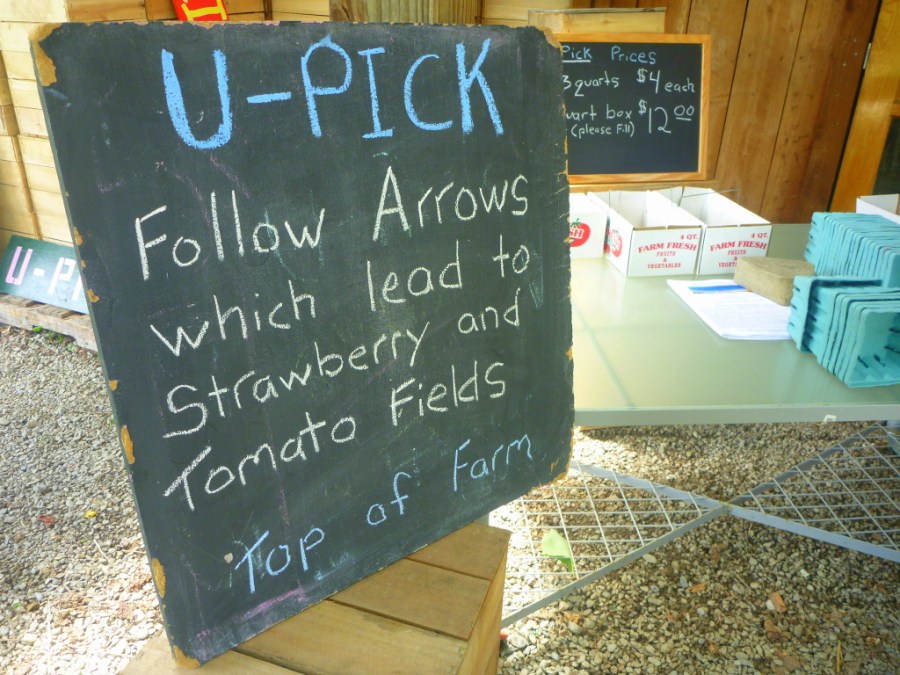 U-PICK
Follow Arrows
which lead to
Strawberry and
Tomato Fields
Top of Farm
Pick Prices
3 quarts $4 each
box $12.00
(please Fill)
4 QT.
FARM FRESH
FRUITS
&
VEGETABLES
4 QT.
FARM FRESH
FRUITS
&
VEGETABLES
U-P